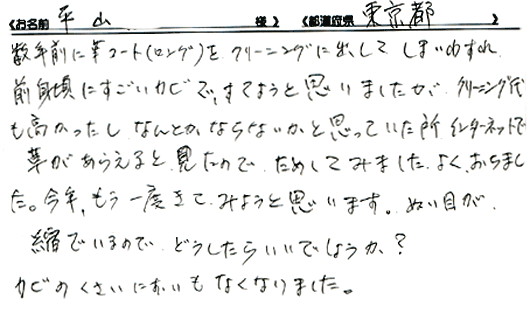 《お名前 平山 様》 《都道府県 東京都 》
数年前に革コート(ロング)を クリーニングに出して しまいわすれ
前身頃にすごいカビで、すてようと思いましたが、クリーニング代
も高かったし なんとか、ならないか、と思っていた所 インターネットで
革があらえると 見たので ためしてみました。よく、おちまし
た。今年、もう一度きて、みようと思います。ぬい目が、
縮でいるので どうしたらいいでしょうか、?
カビのくさいにおいもなくなりました。